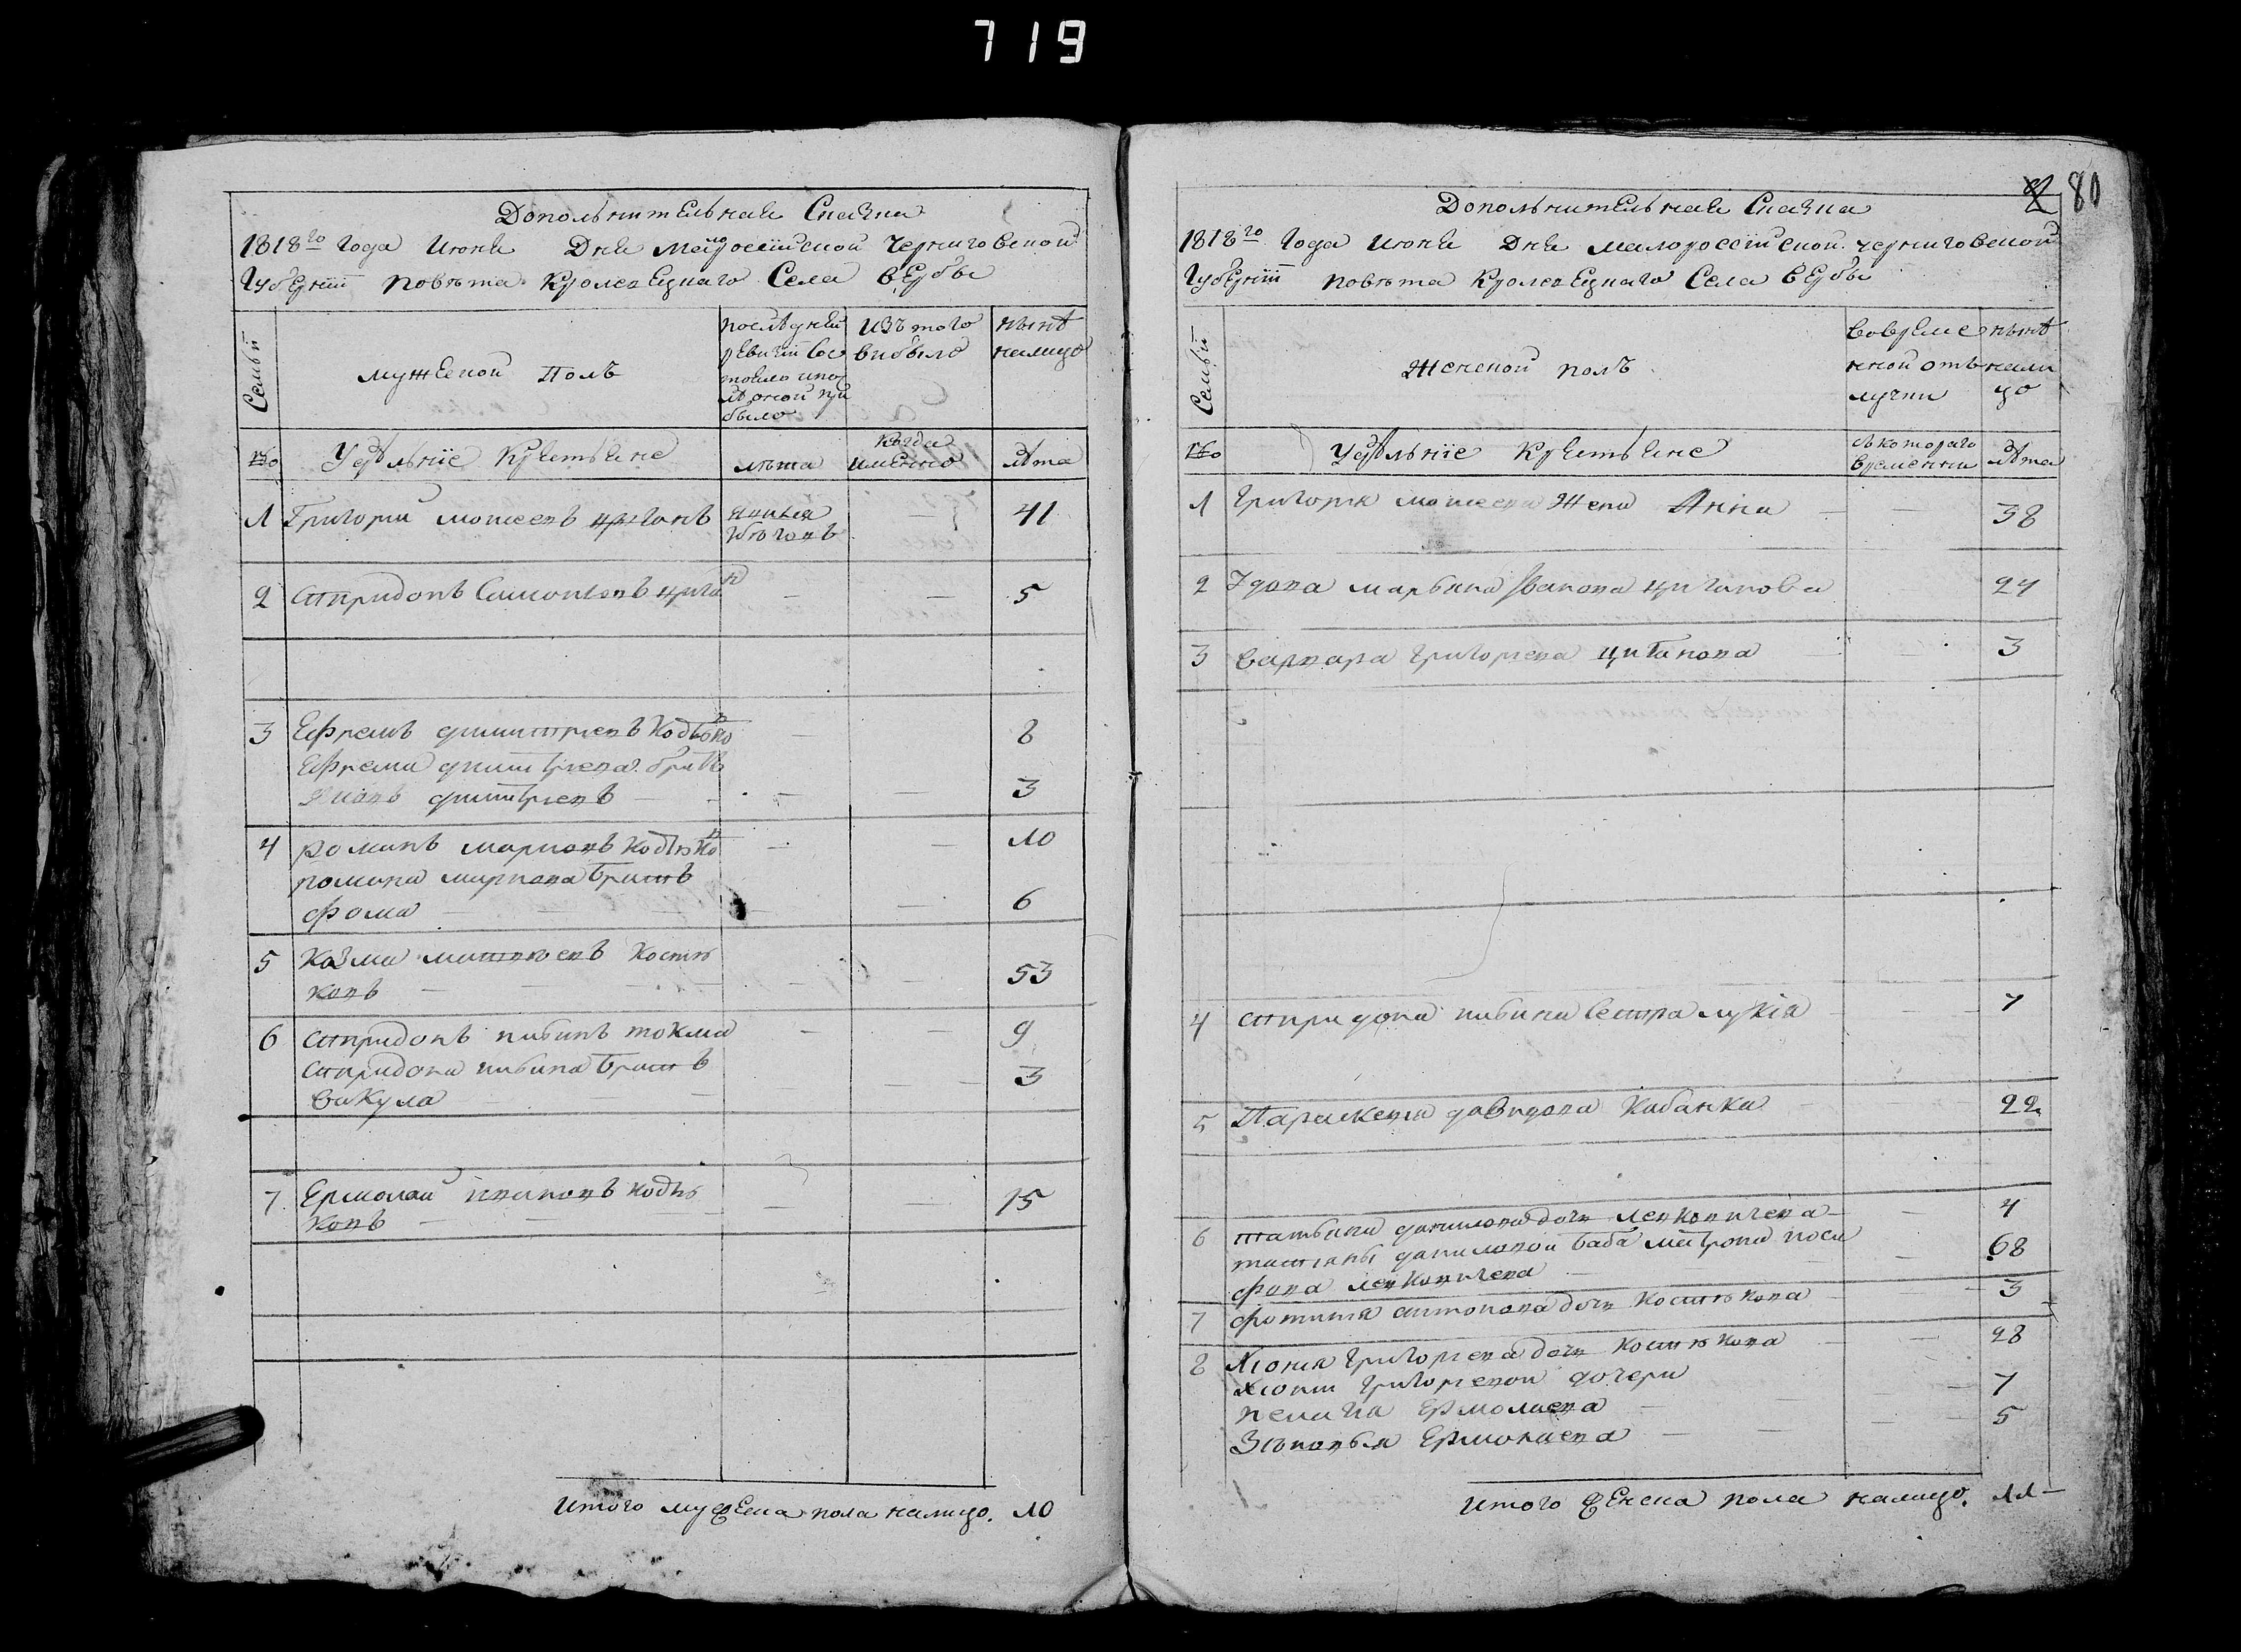 719
Дополнительная Сказка
1818го года Июня Дня Малоросийской Черниговской
Губернїи повѣта Кролевецкаго Села вЕрбы
Семьи
мужеской Полъ
последней
ревизїи сос
тояло ипос
лѣ оной при
было
Изъ того
выбыло
нынѣ
налицо
№
Удѣльнїе Крестьяне
лѣта
когда
имянно
лѣта
1 Григорий моисеевъ циганъ 41
2 Спиридонъ Самойлевъ цига н 5
3 Ефремъ димитриевъ Кодь
Ефрема димитриева братъ 8
димитриевъ 3
4 романъ марковъ 10
романа маркова братъ
фома 6
5 Козма матвѣевъ Костю
ковъ 53
6 Спиридонъ пибинъ токма 9
Спиридона пибина братъ
Вакула 3
7 Ермолай ивановъ
ковъ 15
Итого мужеска пола налицо. 10
2 80
Дополнительная Сказка
1818го Года Июня Дня малоросейской черниговской
Губернїи повѣта Кролевецкаго Села вЕрбы
Семьи
Женской полъ
вовреме
нной отъ
лучки
нынѣ
нали
цо
№
Удѣльнїе Крестьяне
съ котораго
временни
лѣта
1 Григория моисеева Жена Анна 38
2 Удова марьяна Иванова циганова 24
3 Варвара григориева циганова 3
4 Спиридона пибина Сестра лукїя 7
5 Параскевия давидова Кабанка 22
6 татьяна данилова дочь 4
татияны даниловой баба матрона иоси
фова 68
7 фотиния антонова дочь Костюкова 3
8 Хиония григориева дочь Костюкова 28
Хионии григориевой дочери
пелагия Ермолаева 7
Зѣновья Ермолаева 5
итого женска пола налицо. 11